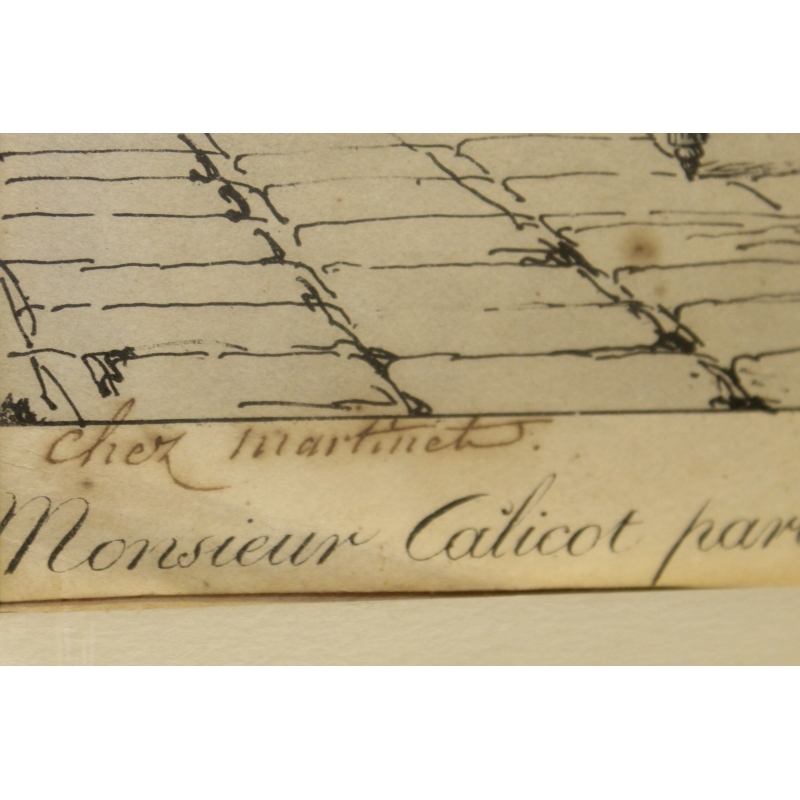 chez martinet.
Monsieur Calicot par